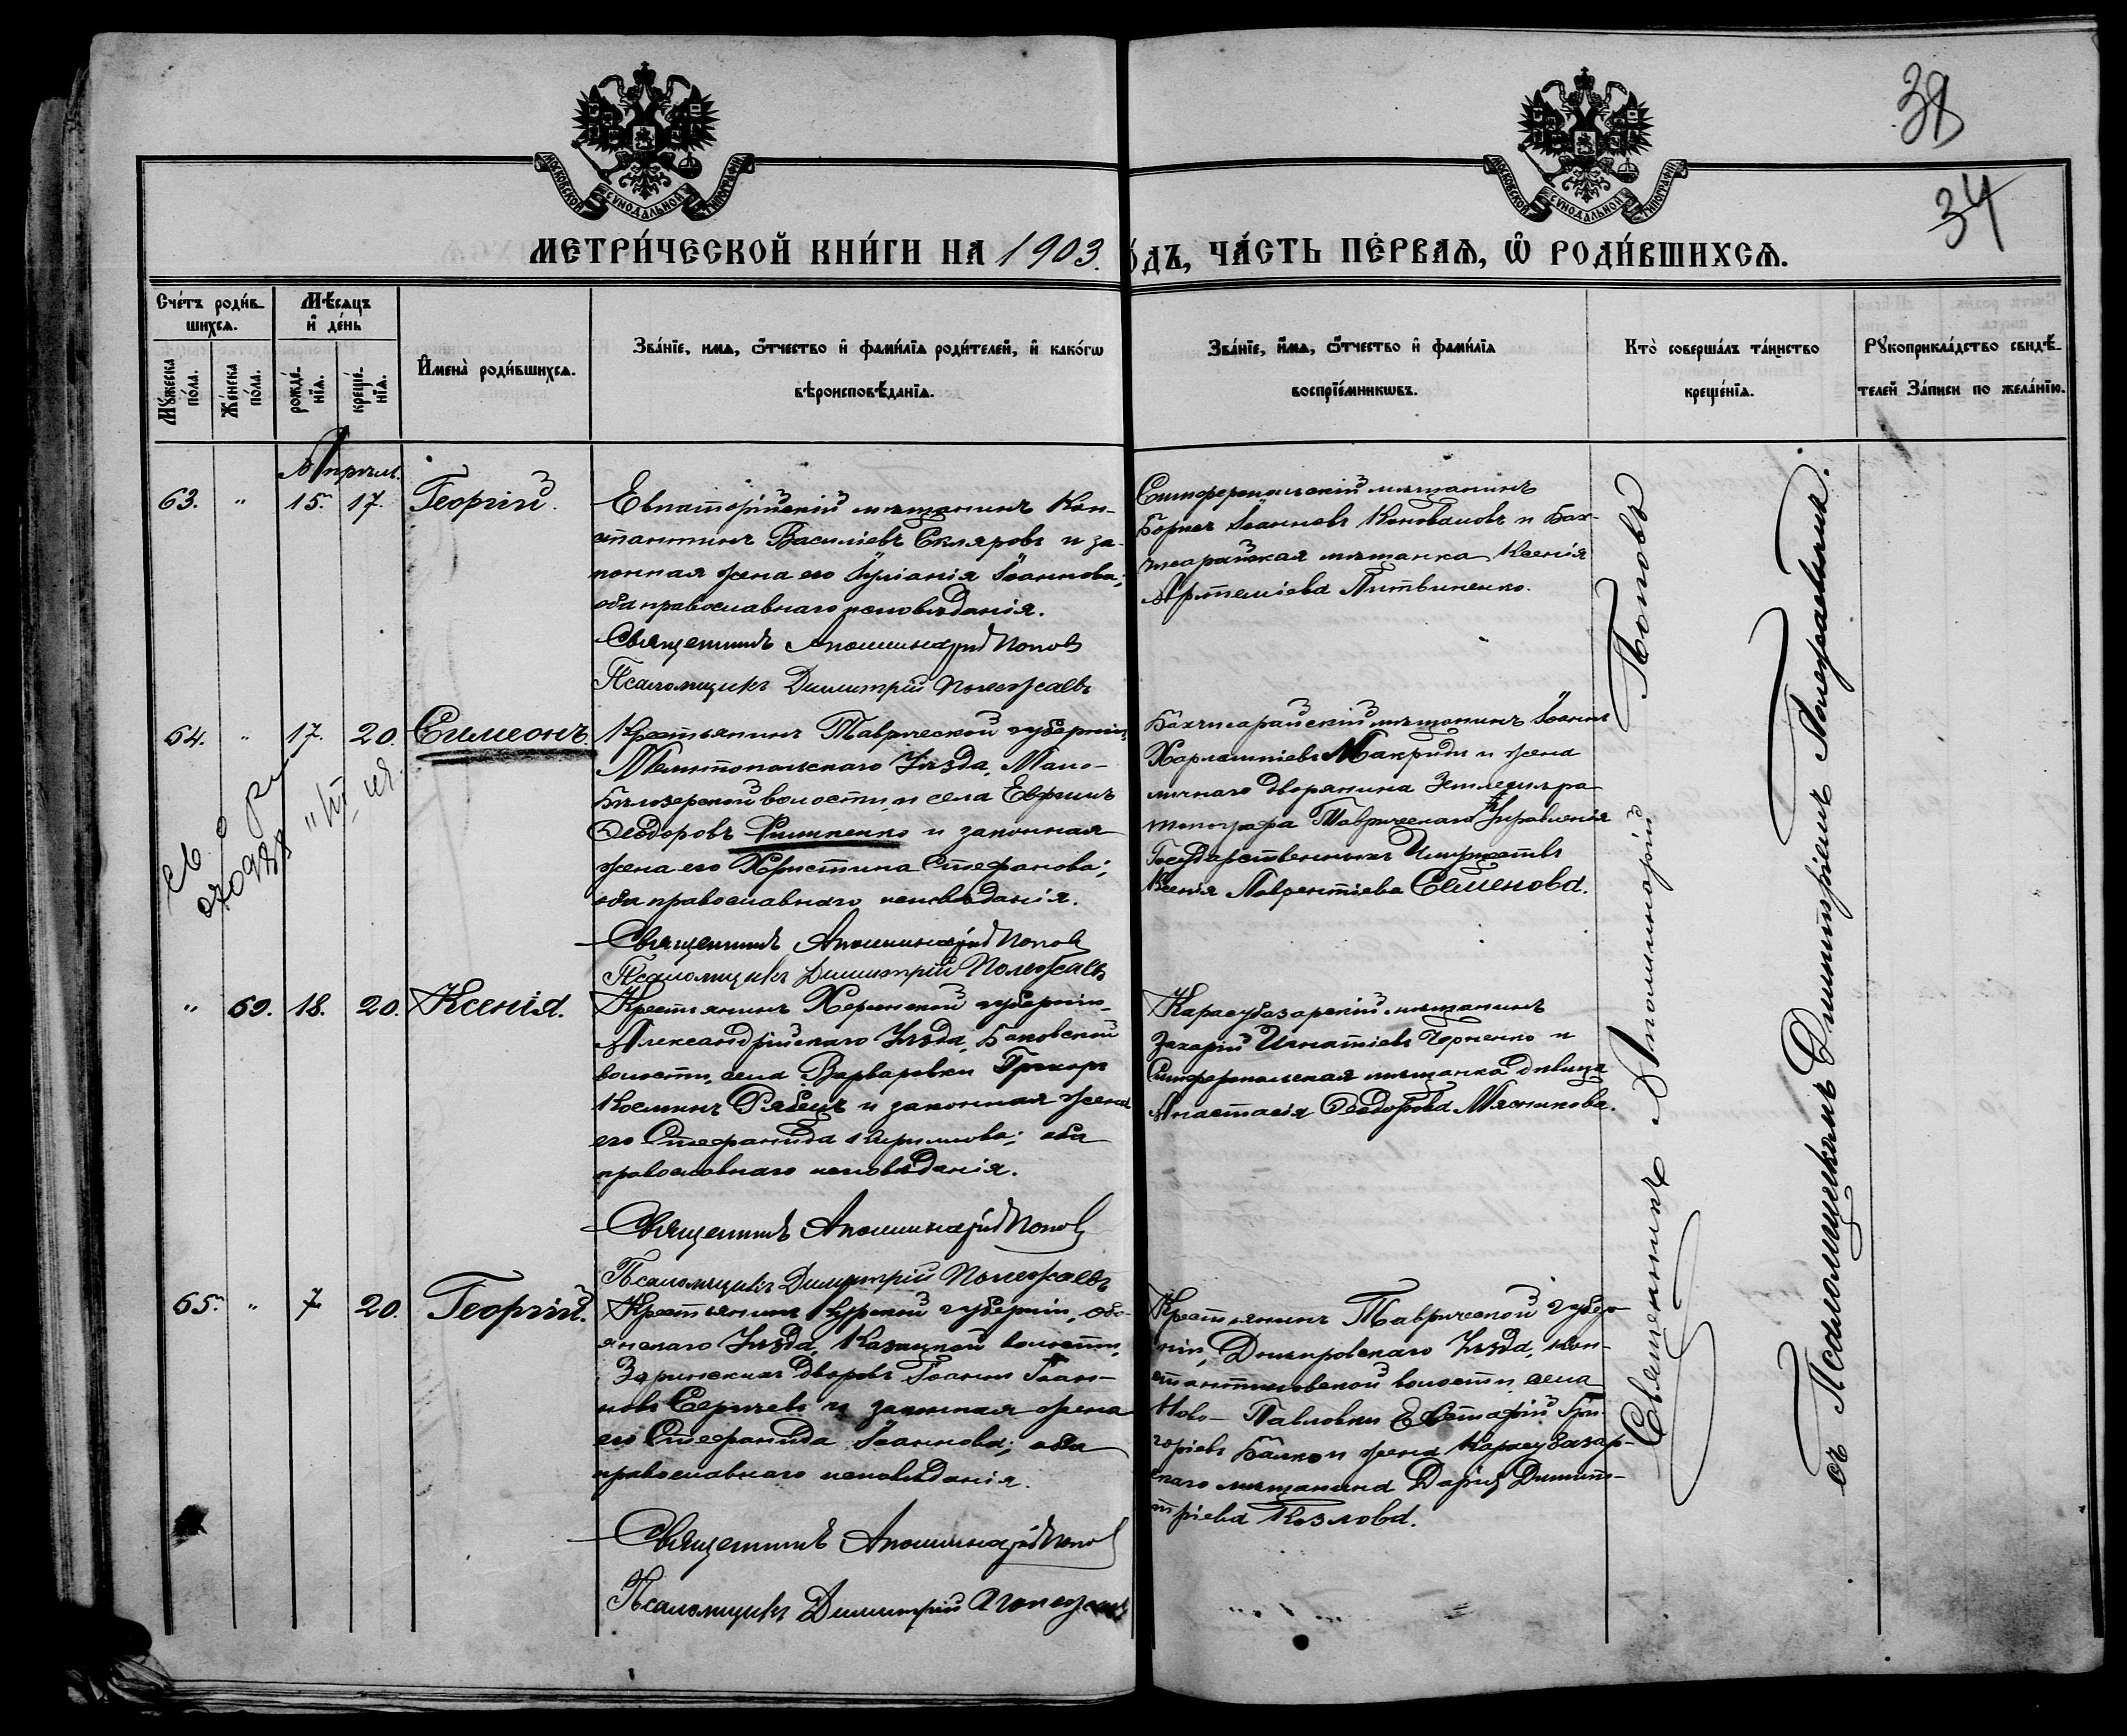 38
34
МОСКОВСКОЙ СѴНОДАЛЬНОЙ ТИПОГРАФІИ
МОСКОВСКОЙ СѴНОДАЛЬНОЙ ТИПОГРАФІИ
МЕТРИ́ЧЕСКОЙ КНИ́ГИ НА 1903.
ДЪ, ЧА́СТЬ ПЕ́РВАѦ, Ѡ РОДИ́ВШИХСѦ.
Сче́тъ роди́в-
шихсѧ.
Мꙋ́жеска по́ла.
Же́нска по́ла.
Мѣ́сѧцъ
и҆ де́нь
рожде́-
нїѧ.
креще́-
нїѧ.
И҆мена̀ роди́вшихсѧ.
Зва́нїе, имѧ, ѻ҆́тчество и҆ фами́лїѧ роди́телей, и҆ како́гѡ
вѣроисповѣ́данїѧ.
Зва́нїе, и҆́мѧ, ѻ҆́тчество и҆ фами́лїѧ
воспрїе́мникѡвъ.
Кто̀ соверша́лъ та́инство
креще́нїѧ.
Рꙋкоприкла́дство свидѣ́-
телей За́писи по жела́нїю.
Апрѣль.
63. " 15. 17. Георгій.
Евпаторійскій мѣщанинъ Кон-
стантинъ Василіевъ Скляровъ и за-
конная жена его Іуліанія Іоаннова;
оба православнаго исповѣданія.
Священникъ Аполлинарій Попов
Псаломщикъ Димитрій Полежаевъ
Симферопольскій мѣщанинъ
Борисъ Іоанновъ Коновановъ и Бах-
чисарайская мѣщанка Ксенія
Артеміева Литвиненко.
64. " 17. 20. Симеонъ.
Крестьянинъ Таврической губерніи,
Мелитопольскаго Уѣзда, Мало-
Бѣлозерской волости и села Евфимъ
Ѳеодоровъ Филипенко и законная
жена его Христина Стефанова;
оба православнаго исповѣданія.
Священникъ Аполлинарій Попов
Псаломщикъ Димитрій Полежаевъ
Бахчисарайскій мѣщанинъ Іоаннъ
Харлампіевъ Макриди и жена
личнаго дворянина Землемѣра
топографа Таврическаго Управленія
Государственныхъ Имуществъ
Ксенія Лаврентіева Семенова.
" 69. 18. 20. Ксенія.
Крестьянинъ Херсонской губерніи,
Александрійскаго Уѣзда,
волости, села Варваровки Прохоръ
Косминъ Рябецъ и законная жена
его Стефанида Кириллова; оба
православнаго исповѣданія.
Священникъ Аполлинарій Попов
Псаломщикъ Димитрій Полежаевъ
Карасубазарскій мѣщанинъ
Захарій Игнатіевъ Чорненко и
Симферопольская мѣщанка дѣвица
Анастасія Ѳеодорова Мясникова.
65. " 7. 20. Георгій.
Крестьянинъ Курской губерніи, Обо-
янскаго Уѣзда, Казацкой волости,
дворовъ Іоаннъ Іоан-
новъ Сергѣевъ и законная жена
его Стефанида Іоаннова; оба
православнаго исповѣданія.
Священникъ Аполлинарій Попов
Псаломщикъ Димитрій Полежаевъ
Крестьянинъ Таврической губер-
ніи, Днѣпровскаго Уѣзда, Кон-
стантиновской волости, села
Ново-Павловки Евстафій Гри-
горіевъ Балко и жена Карасубазар-
скаго мѣщанина Дарія Димит-
тріева Козлова.
Священникъ Аполлинарій Поповъ
съ Псаломщикомъ Димитріемъ Полежаевымъ.